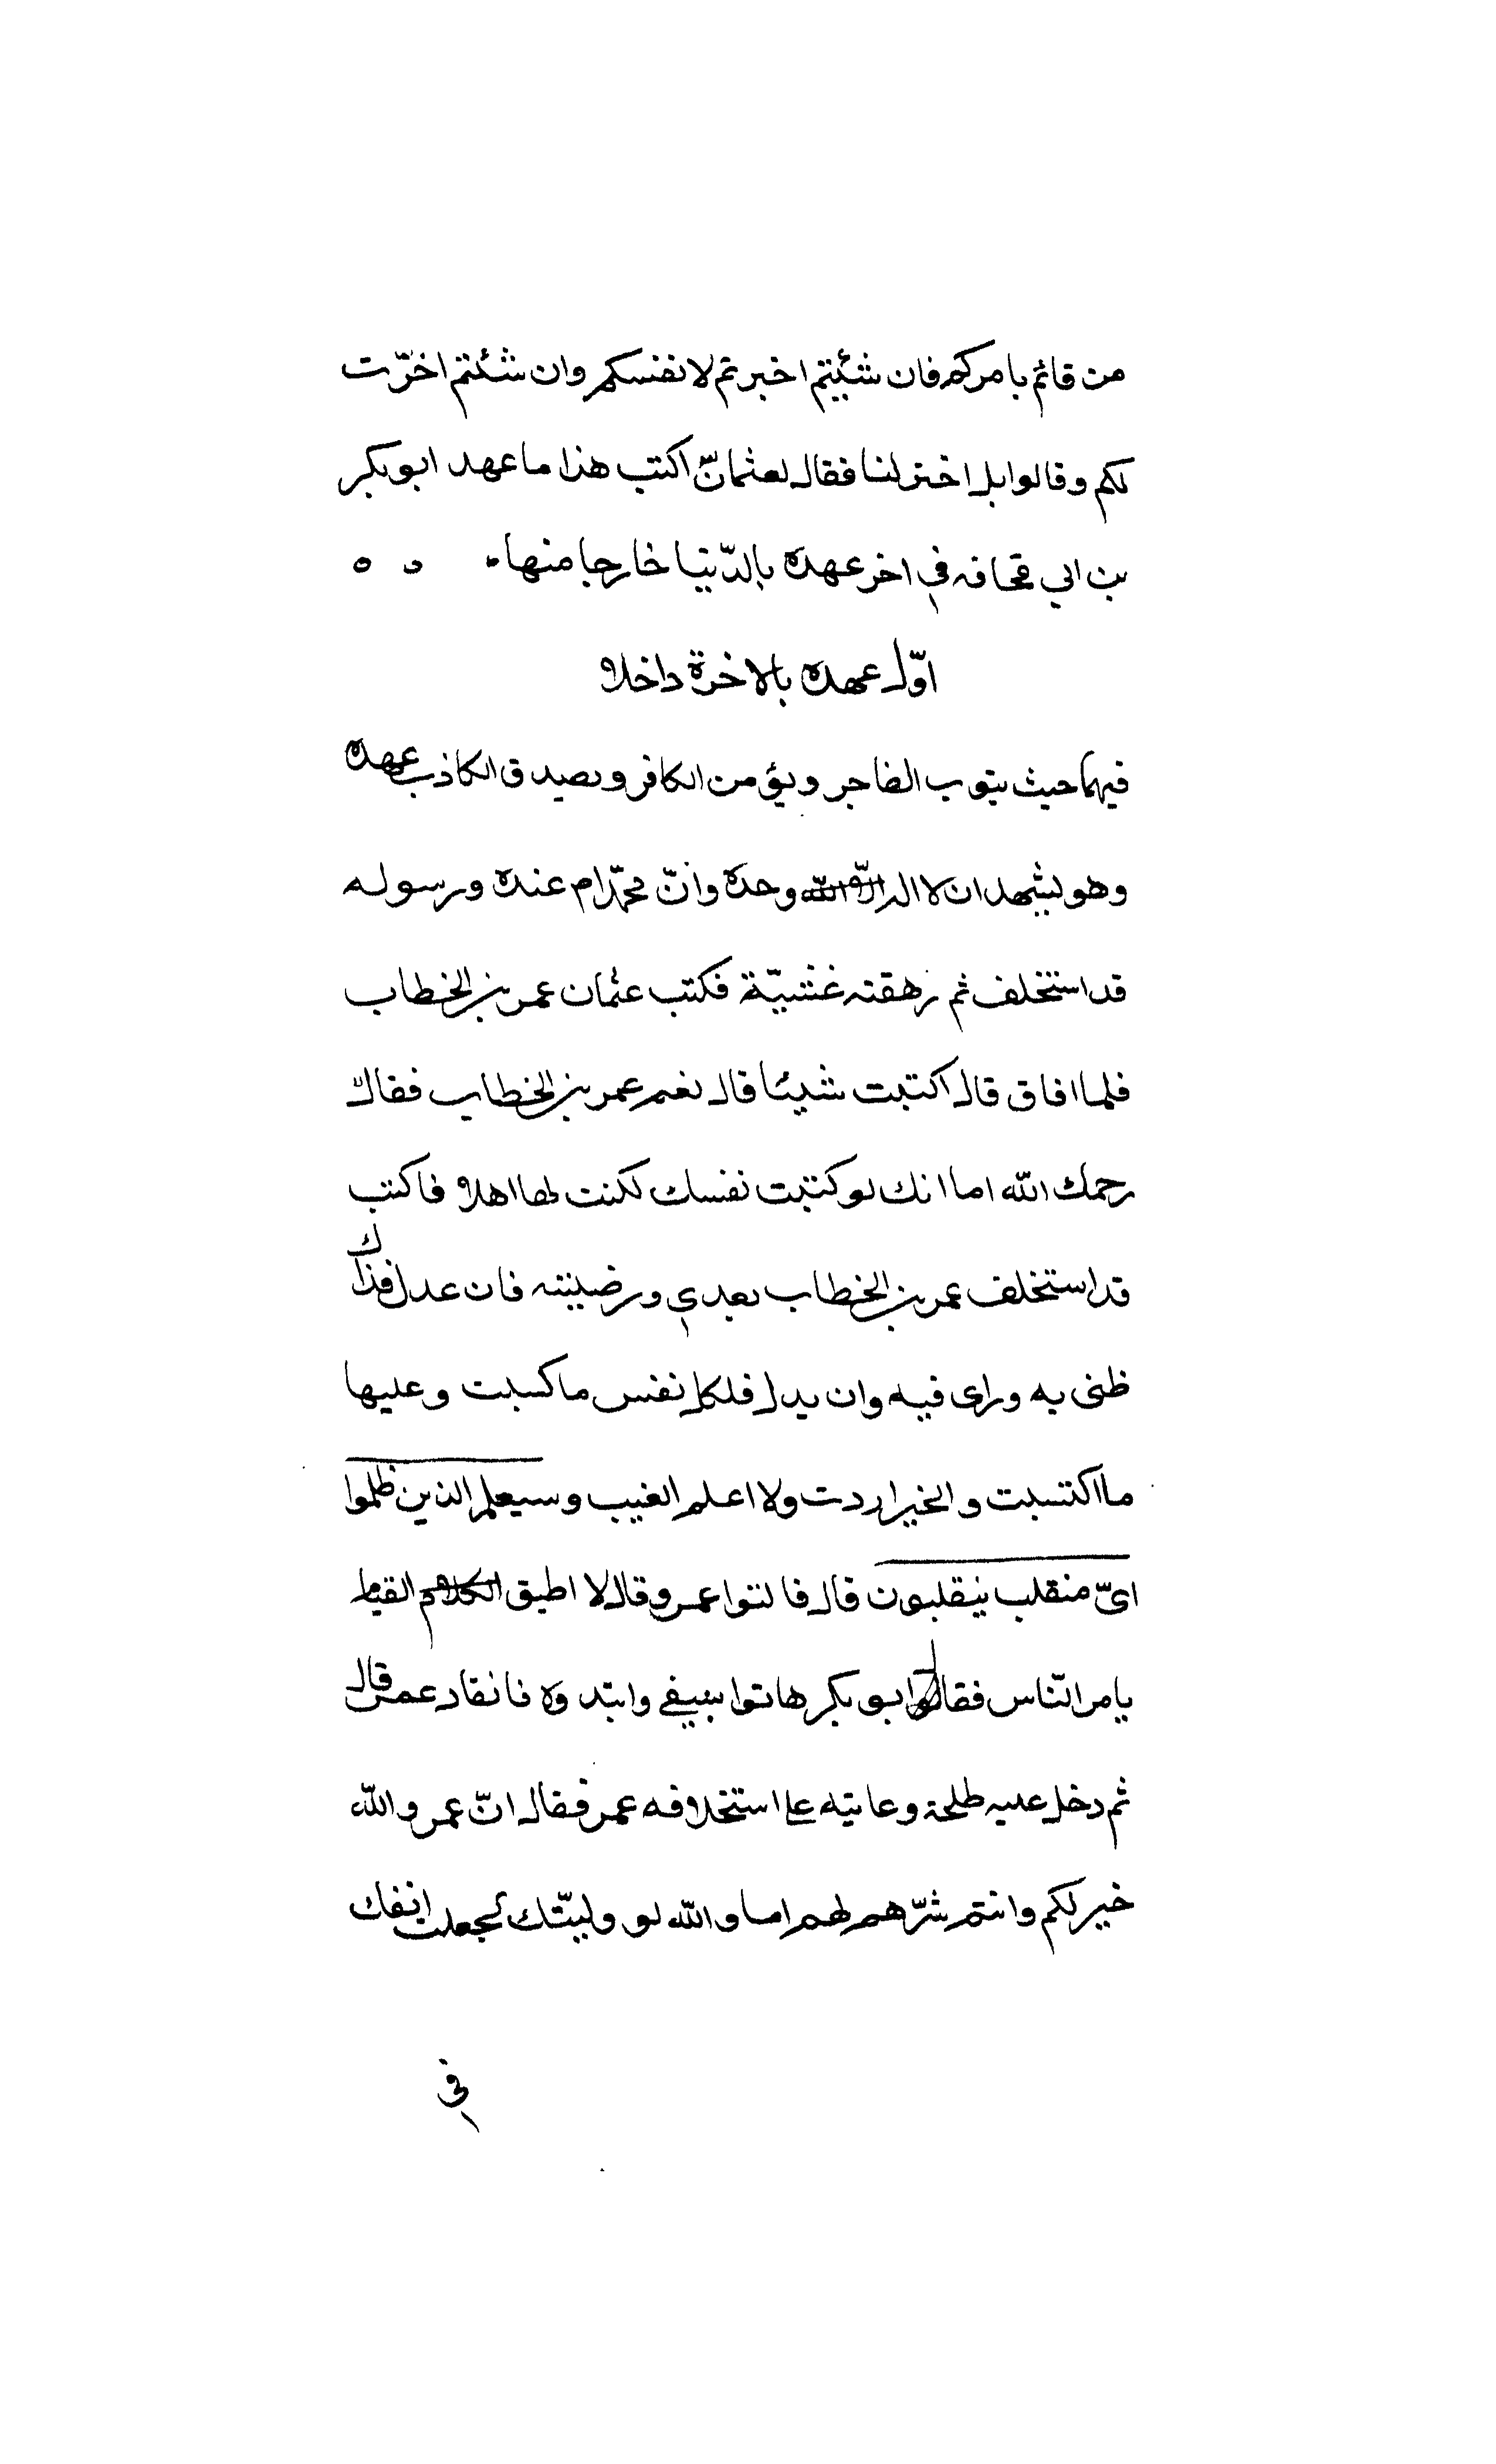 من قائم بامركم فان شئيتم اخبرتم لانفسكم وان شئتم اخرّت
لكم وقالوا بل اختر لنا فقال لعثمانّ اكتب هذا ما عهد ابو بكر
بن ابي قحافه في اخر عهده بالدّنيا خارجا منها
اوّل عهده بالاخرة داخلا
فيها حيث يتوب الفاجر ويؤمن الكافر ويصدق الكاذب عهده
وهو ليشهد ان لا اله الّا الله وحده وانّ محمّدا م عنده ورسوله
قد استخلف ثم زهقته غشيّة فكتب عثمان عمر بن الخطاب
فلما افاق قال اكتبت شيئا قال نعم عمر بن الخطاب فقال
رحمك الله اما انك لو كتبت نفسك لكنت لها اهلا فاكتب
قد استخلف عمر بن الخطاب بعدي ورضيته فان عدل فذاك
ظنى به وراى فيه وان بدل فلكل نفس ما كسبت وعليها
ما اكتسبت والخير اردت ولا اعلم الغيب وسيعلم الذين ظلموا
ايّ منقلب ينقلبون قال فالتوا عمر وقال لا اطيق الكلام القيام
بامر النّاس فقال ابو بكر هاتوا سيفي وابتدوه فانقاد عمر قال
ثم دخل عليه طلحة وعاتبه على استخلافه عمر فقال انّ عمر والله
خير لكم وانتم شرّهم لهم اما والله لو وليتّك لجعلت انفك
في